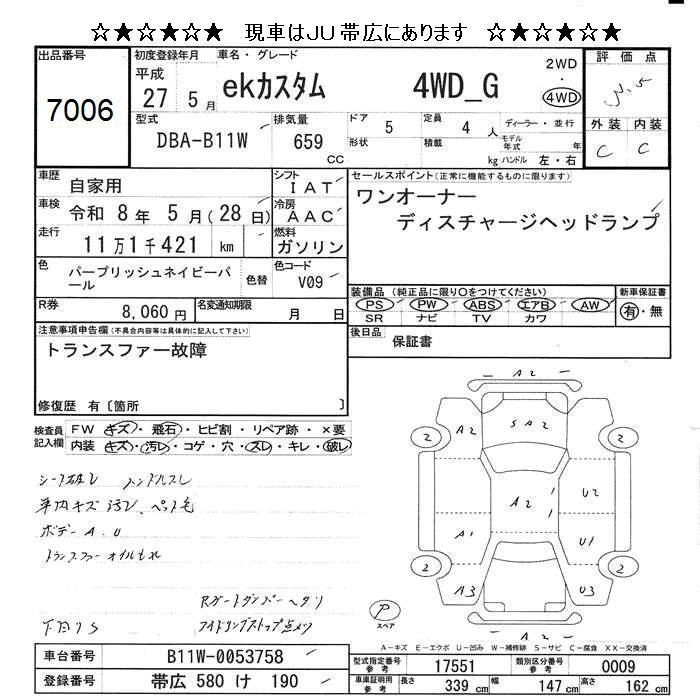 ☆★☆★☆★ 現車はJU帯広にあります ☆★☆★☆★
出品番号
7006
初度登録年月
平成
27 5月
車名・グレード
ekカスタム 4WD_G
2WD
・
4WD
評価点
外装 内装
C C
型式
DBA-B11W
排気量
659
cc
ドア
5
形状
定員
4人
積載
kg
ディーラー・並行
モデル年式 年
ハンドル 左・右
車歴
自家用
シフト
IAT
車検
令和 8年 5月(28日)
冷房
AAC
走行
11万1千421 km
燃料
ガソリン
色
パープリッシュネイビーパール
色替
色コード
V09
R券
8,060円
名変通知期限
月 日
セールスポイント(正常に機能するものに限ります)
ワンオーナー
ディスチャージヘッドランプ
装備品(純正品に限り○をつけてください)
PS PW ABS エアB AW
SR ナビ TV カワ
新車保証書
有・無
後日品
保証書
注意事項申告欄(不具合内容等は具体的に記入して下さい)
トランスファー故障
修復歴 有〔箇所 〕
検査員記入欄
FW キズ・飛石・ヒビ割・リペア跡・×要
内装 キズ・汚レ・コゲ・穴・スレ・キレ・破レ
シート破レ ハンドルスレ
車内キズ汚レ、ペット毛
ボデーA.U
トランスファーオイルもれ
Rゲートダンパーヘタリ
下廻りS
アイドリングストップ点メツ
A2
2 SA2 2
A2 U2
A1 U1
2 2
A3 U3
A2
P
スペア
A-キズ E-エクボ U-凹み W-補修跡 S-サビ C-腐食 XX-交換済
車台番号
B11W-0053758
登録番号
帯広 580 け 190
型式指定番号
参考
17551
類別区分番号
参考
0009
車庫証明用
参考
長さ
339 cm
幅
147 cm
高さ
162 cm